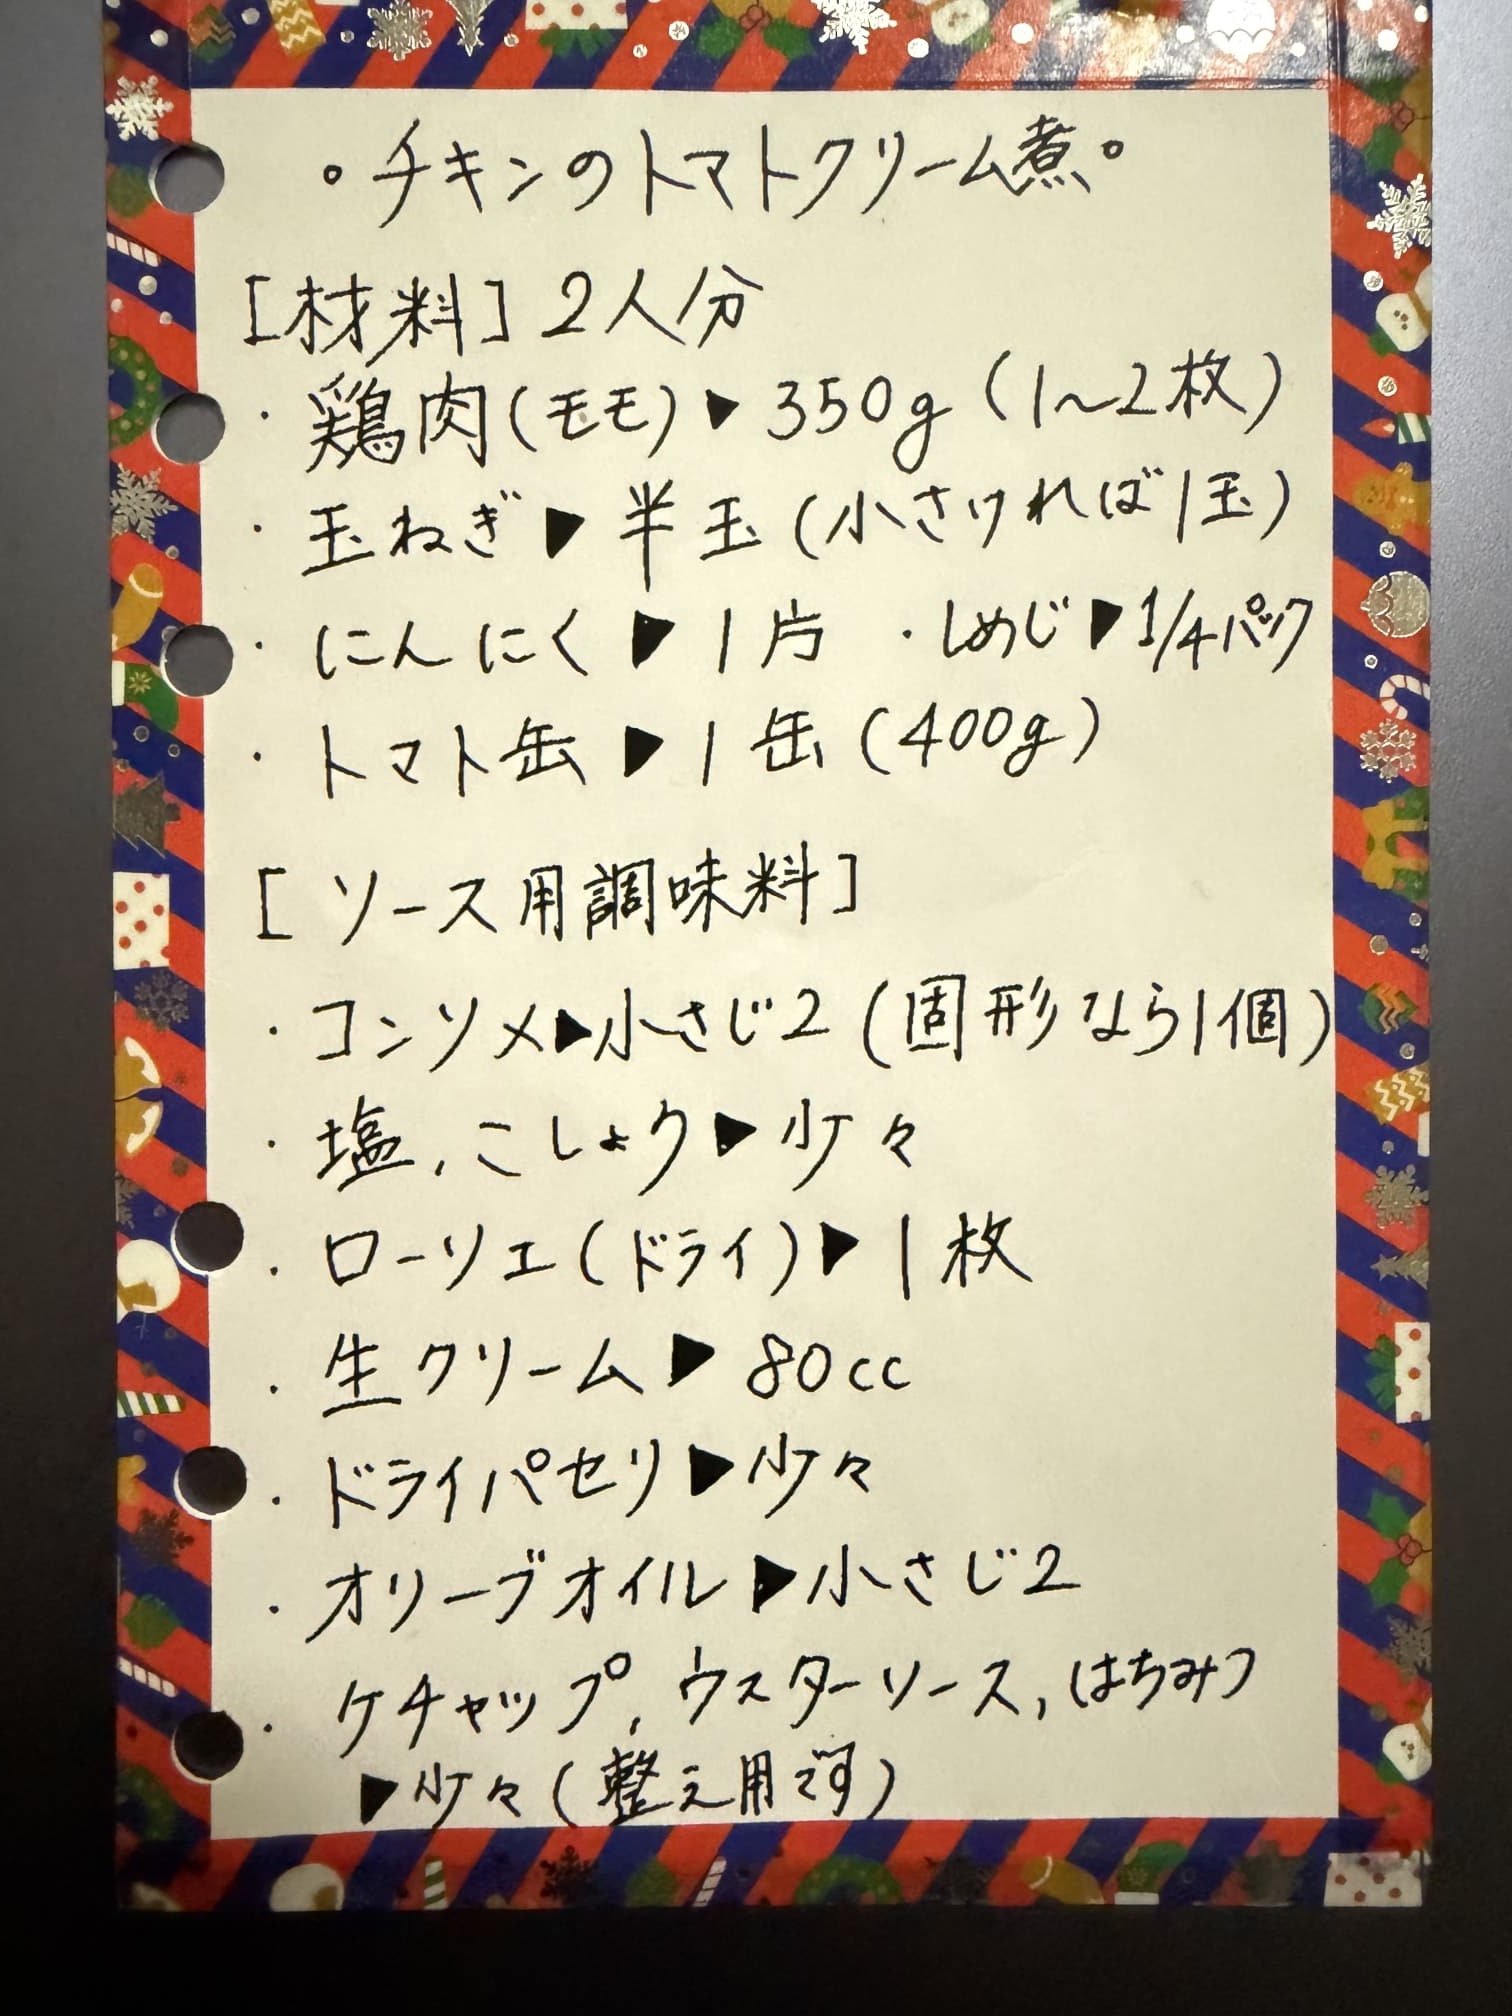 。チキンのトマトクリーム煮。
[材料] 2人分
・鶏肉(モモ)▶350g (1〜2枚)
・玉ねぎ▶半玉(小さければ1玉)
・にんにく▶1片 ・しめじ▶1/4パック
・トマト缶▶1缶(400g)
[ソース用調味料]
・コンソメ▶小さじ2(固形なら1個)
・塩、こしょう▶少々
・ローリエ(ドライ)▶1枚
・生クリーム▶80cc
・ドライパセリ▶少々
・オリーブオイル▶小さじ2
・ケチャップ、ウスターソース、はちみつ
▶少々(整え用です)